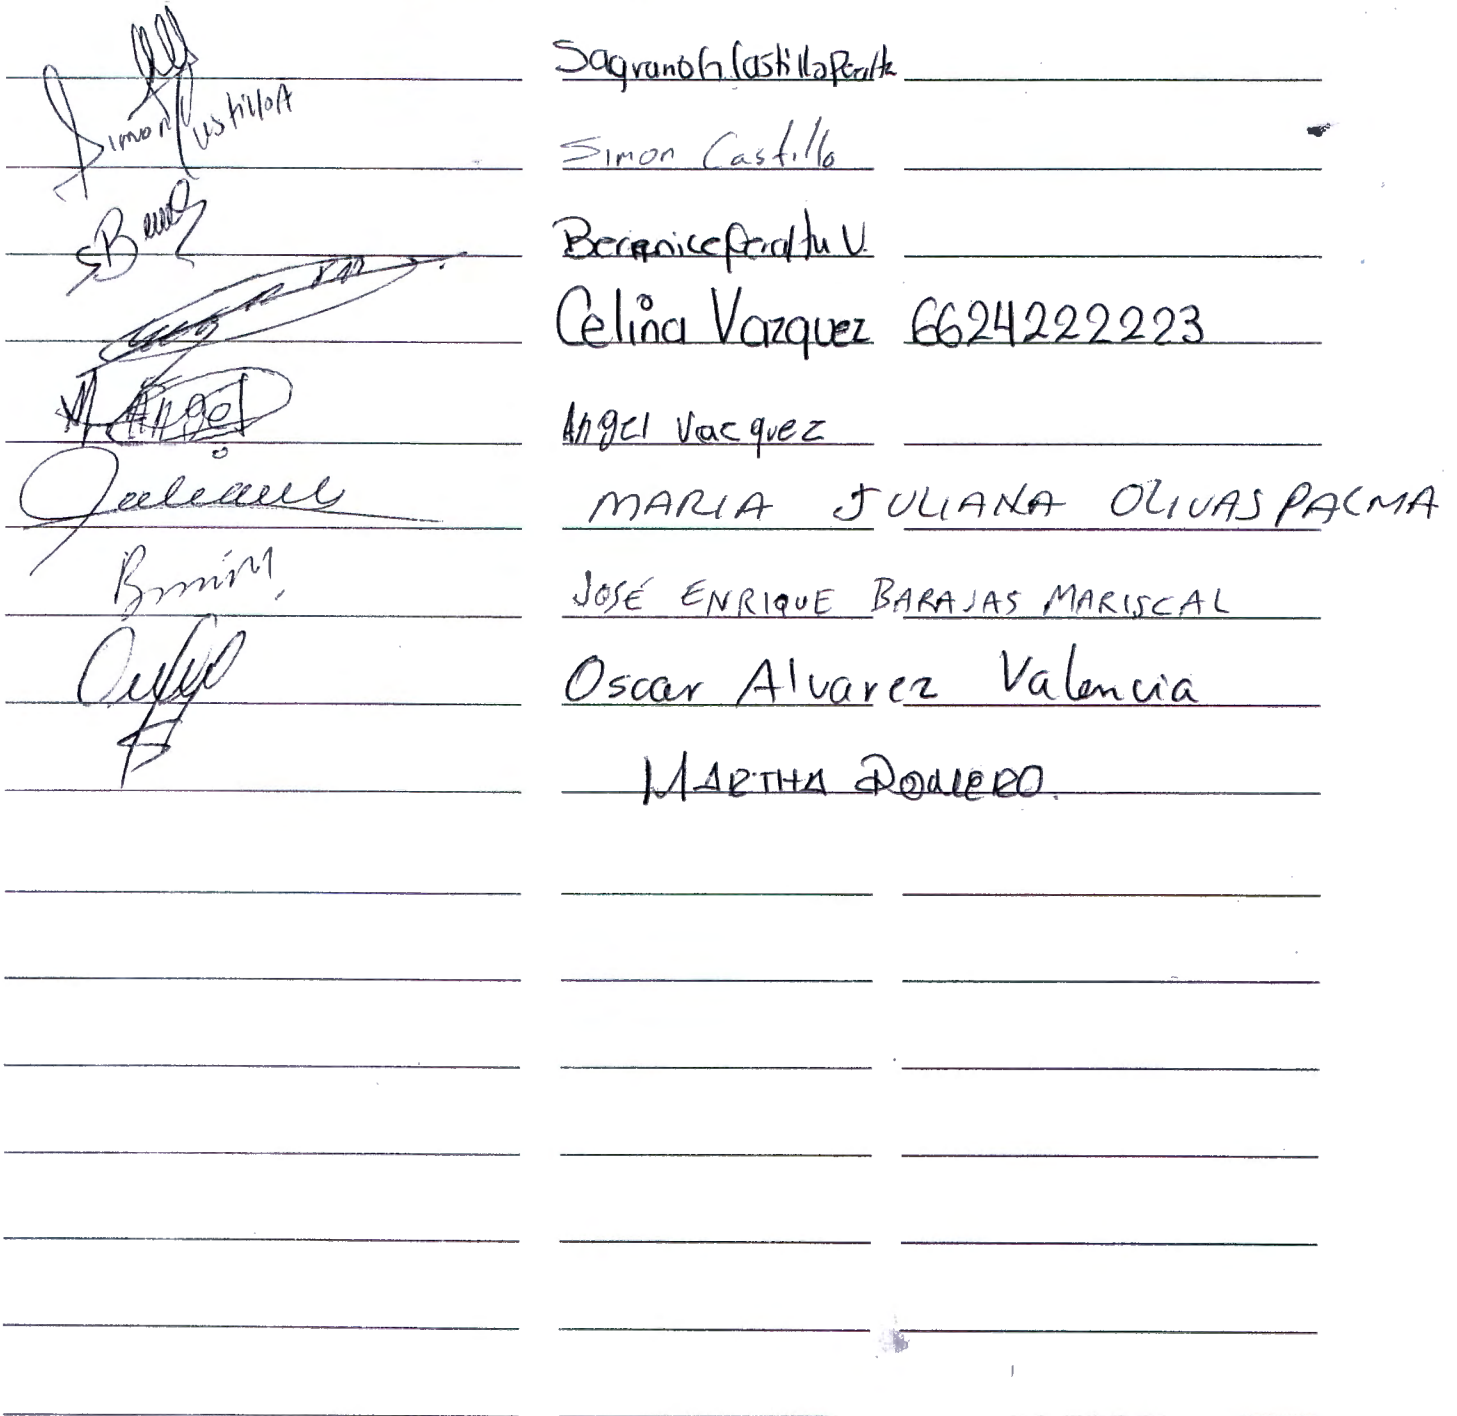 Castillo Peralta
Simón Castillo A
Simon Castillo
Berenice Peralta V.
Celina Vazquez 6624222223
Angel Angel Vacquez
Juliana MARIA JULIANA OLIVAS PALMA
JOSÉ ENRIQUE BARAJAS MARISCAL
Oscar Alvarez Valencia
MARTHA ROMERO.